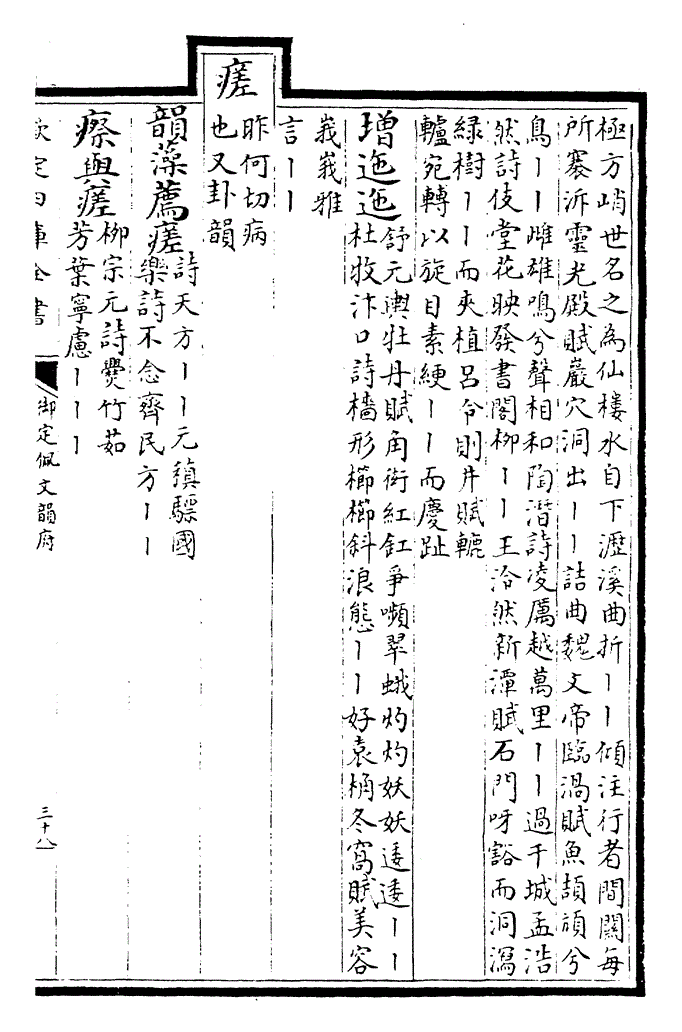 極方峭世名之為仙樓水自下瀝溪曲折丨丨傾注行者間關每
所褰泝靈光殿賦巖穴洞出丨丨詰曲魏文帝臨渦賦魚頡頏兮
鳥丨丨雌雄鳴兮聲相和陶潛詩凌厲越萬里丨丨過千城孟浩
然詩伎堂花映發書閣柳丨丨王泠然新潭賦石門呀豁而洞瀉
綠樹丨丨而夾植呂令則井賦轆
轤宛轉以旋目素綆丨丨而慶趾
增迤迤
舒元輿牡丹賦角衒紅釭爭嚬翠蛾灼灼妖妖逶逶丨丨
杜牧汴口詩檣形櫛櫛斜浪態丨丨好袁桷冬窩賦美容
峩峩雅
言丨丨
瘥
昨何切病
也又卦韻
韻藻薦瘥
詩天方丨丨元稹驃國
樂詩不念齊民方丨丨
瘵與瘥
栁宗元詩㸑竹茹
芳葉寧慮丨丨丨
欽定四庫全書
御定佩文韻府
三十八